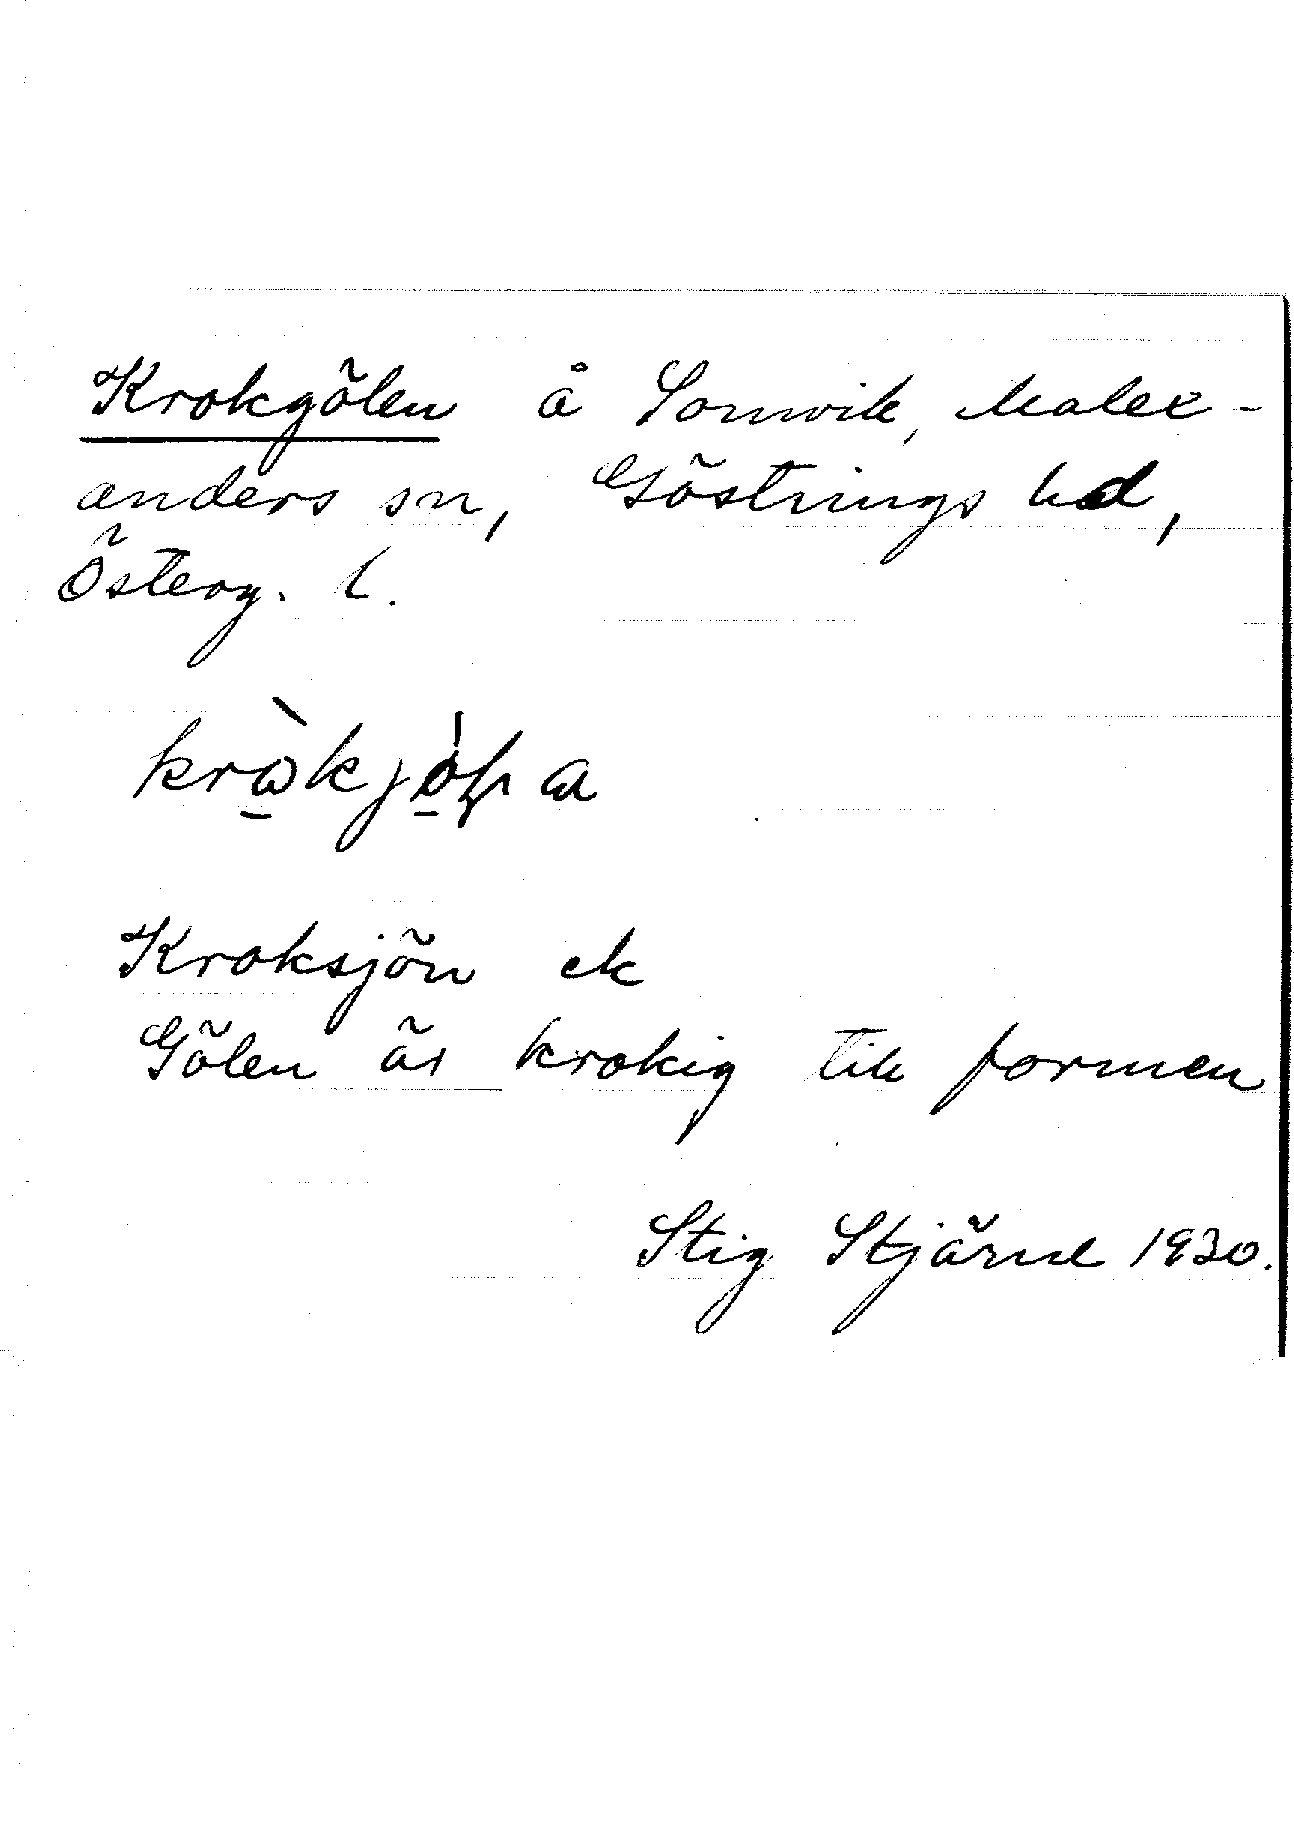 Krokgölen å Somvik, Malex-
anders sn, Göstrings hd,
Österg. l.
Kroksjön ek
Gölen är krokig till formen
Stig Stjärne 1930.